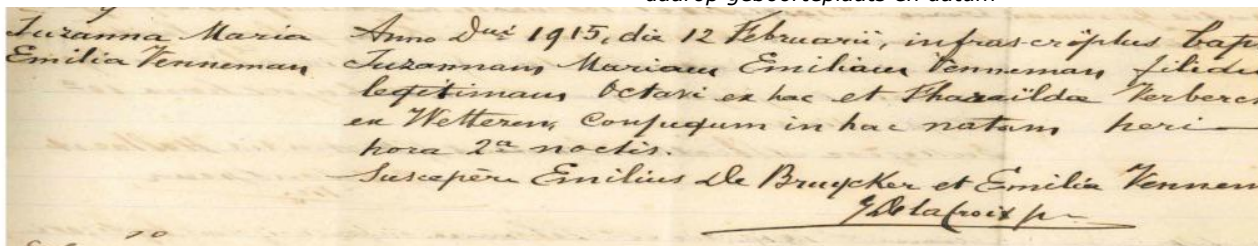 daarop geboorteplaats en datum
Suzanna Maria Anno Dni 1915, die 12 Februarii, infrascriptus bap
Emilia Venneman Suzannam Mariam Emiliam Venneman filiam
legitimam Octavi ex hac et Pharaïldæ Verberc
ex Wetteren, conjugum in hac natam heri
hora 2ª noctis.
Suscepere Emilius De Bruycker et Emilia Vennem
Delacroix p